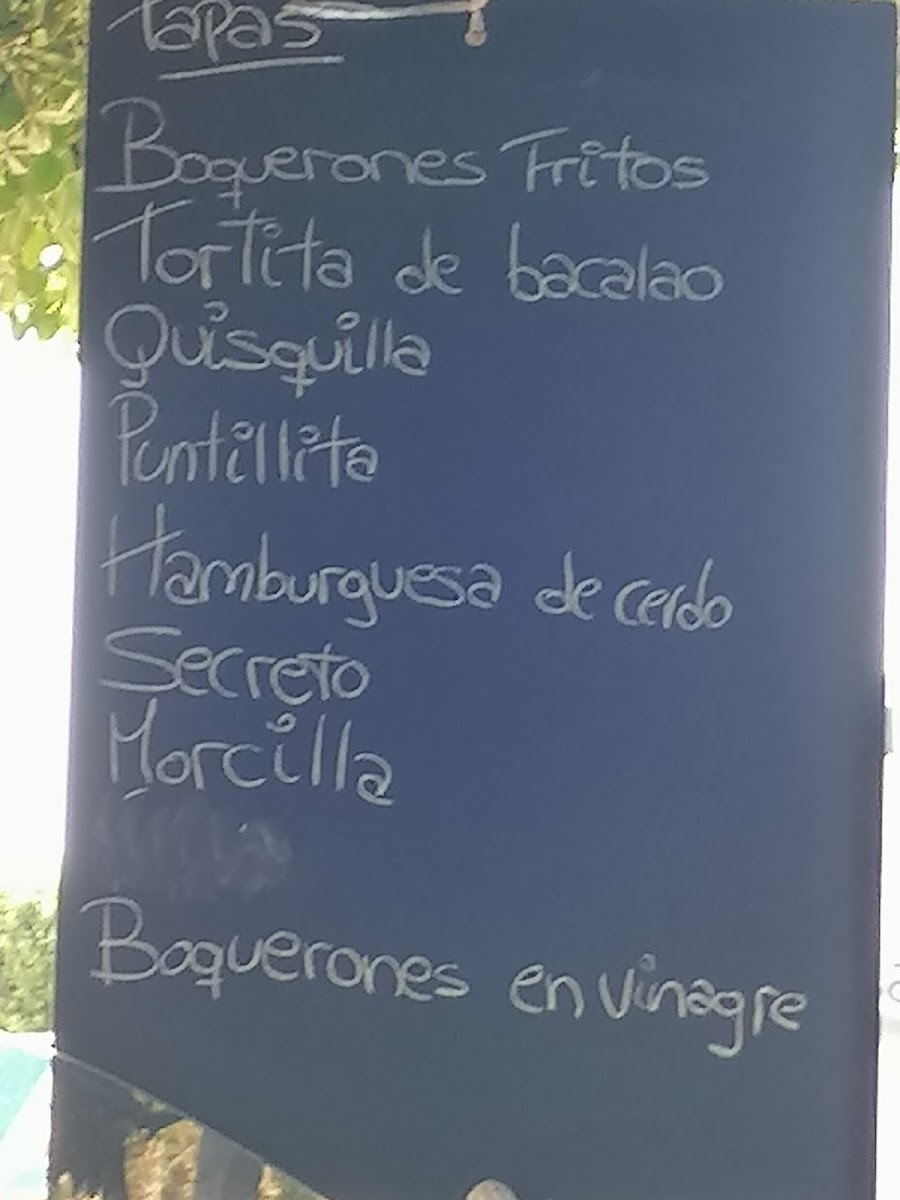 Tapas
Boquerones Fritos
Tortita de bacalao
Quisquilla
Puntillita
Hamburguesa de cerdo
Secreto
Morcilla
Boquerones en vinagre